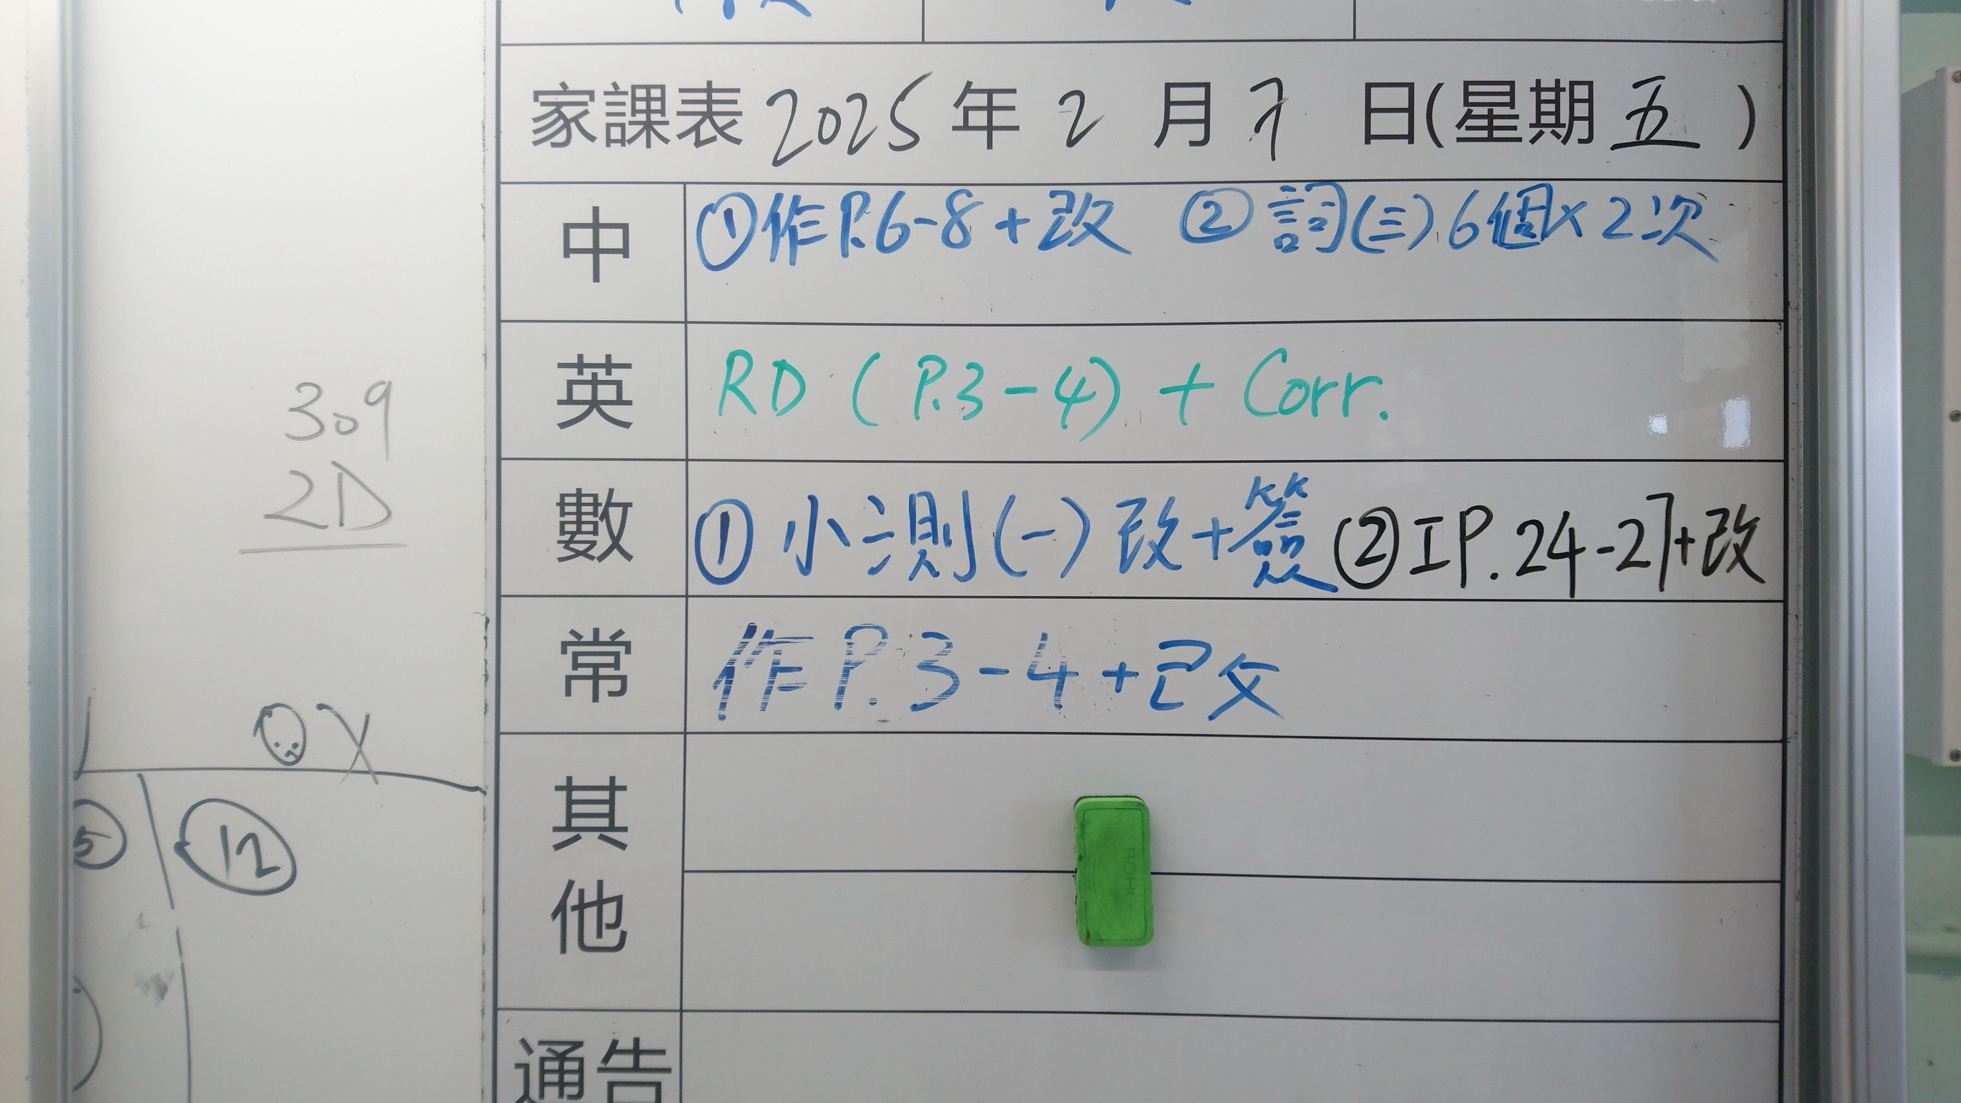 家課表 2025 年 2 月 7 日(星期 五 )
中 ①作P.6-8+改 ②詞(三)6個×2次
英 RD (P.3-4) + Corr.
數 ①小測(一)改+簽 ②IP.24-27+改
常 作P.3-4+改
其他
通告
309
2D
5
12